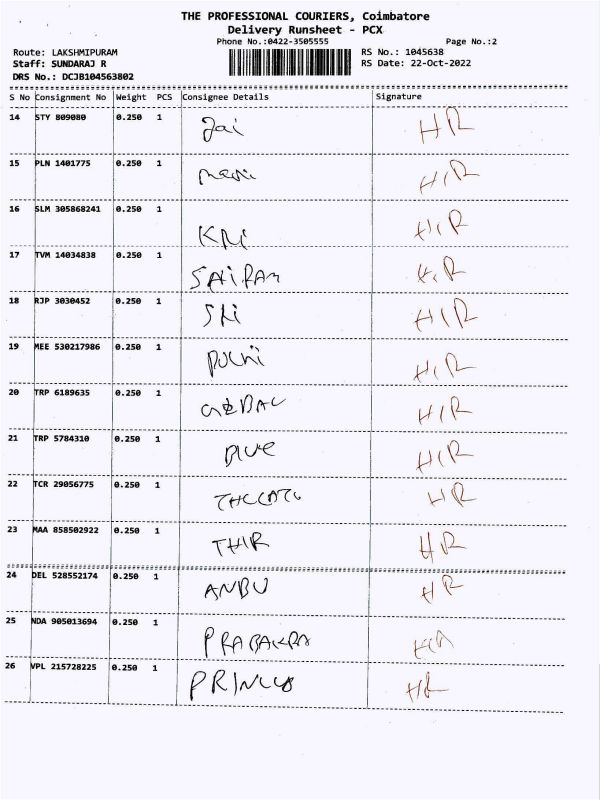 THE PROFESSIONAL COURIERS, Coimbatore
Delivery Runsheet - PCX
Phone No.:0422-3505555 Page No.:2
Route: LAKSHMIPURAM RS No.: 1045638
Staff: SUNDARAJ R RS Date: 22-Oct-2022
DRS No.: DCJB104563802
S No Consignment No Weight PCS Consignee Details Signature
14 STY 809080 0.250 1 Jai HR
15 PLN 1401775 0.250 1 HIR
16 SLM 305868241 0.250 1 KRi HIR
17 TVM 14034838 0.250 1 SAIRAM HIR
18 RJP 3030452 0.250 1 SRi HIR
19 MEE 530217986 0.250 1 HIR
20 TRP 6189635 0.250 1 HIR
21 TRP 5784310 0.250 1 BlUe HIR
22 TCR 29056775 0.250 1 HR
23 MAA 858502922 0.250 1 THIR HR
24 DEL 528552174 0.250 1 ANBU HR
25 NDA 905013694 0.250 1
26 VPL 215728225 0.250 1 HR